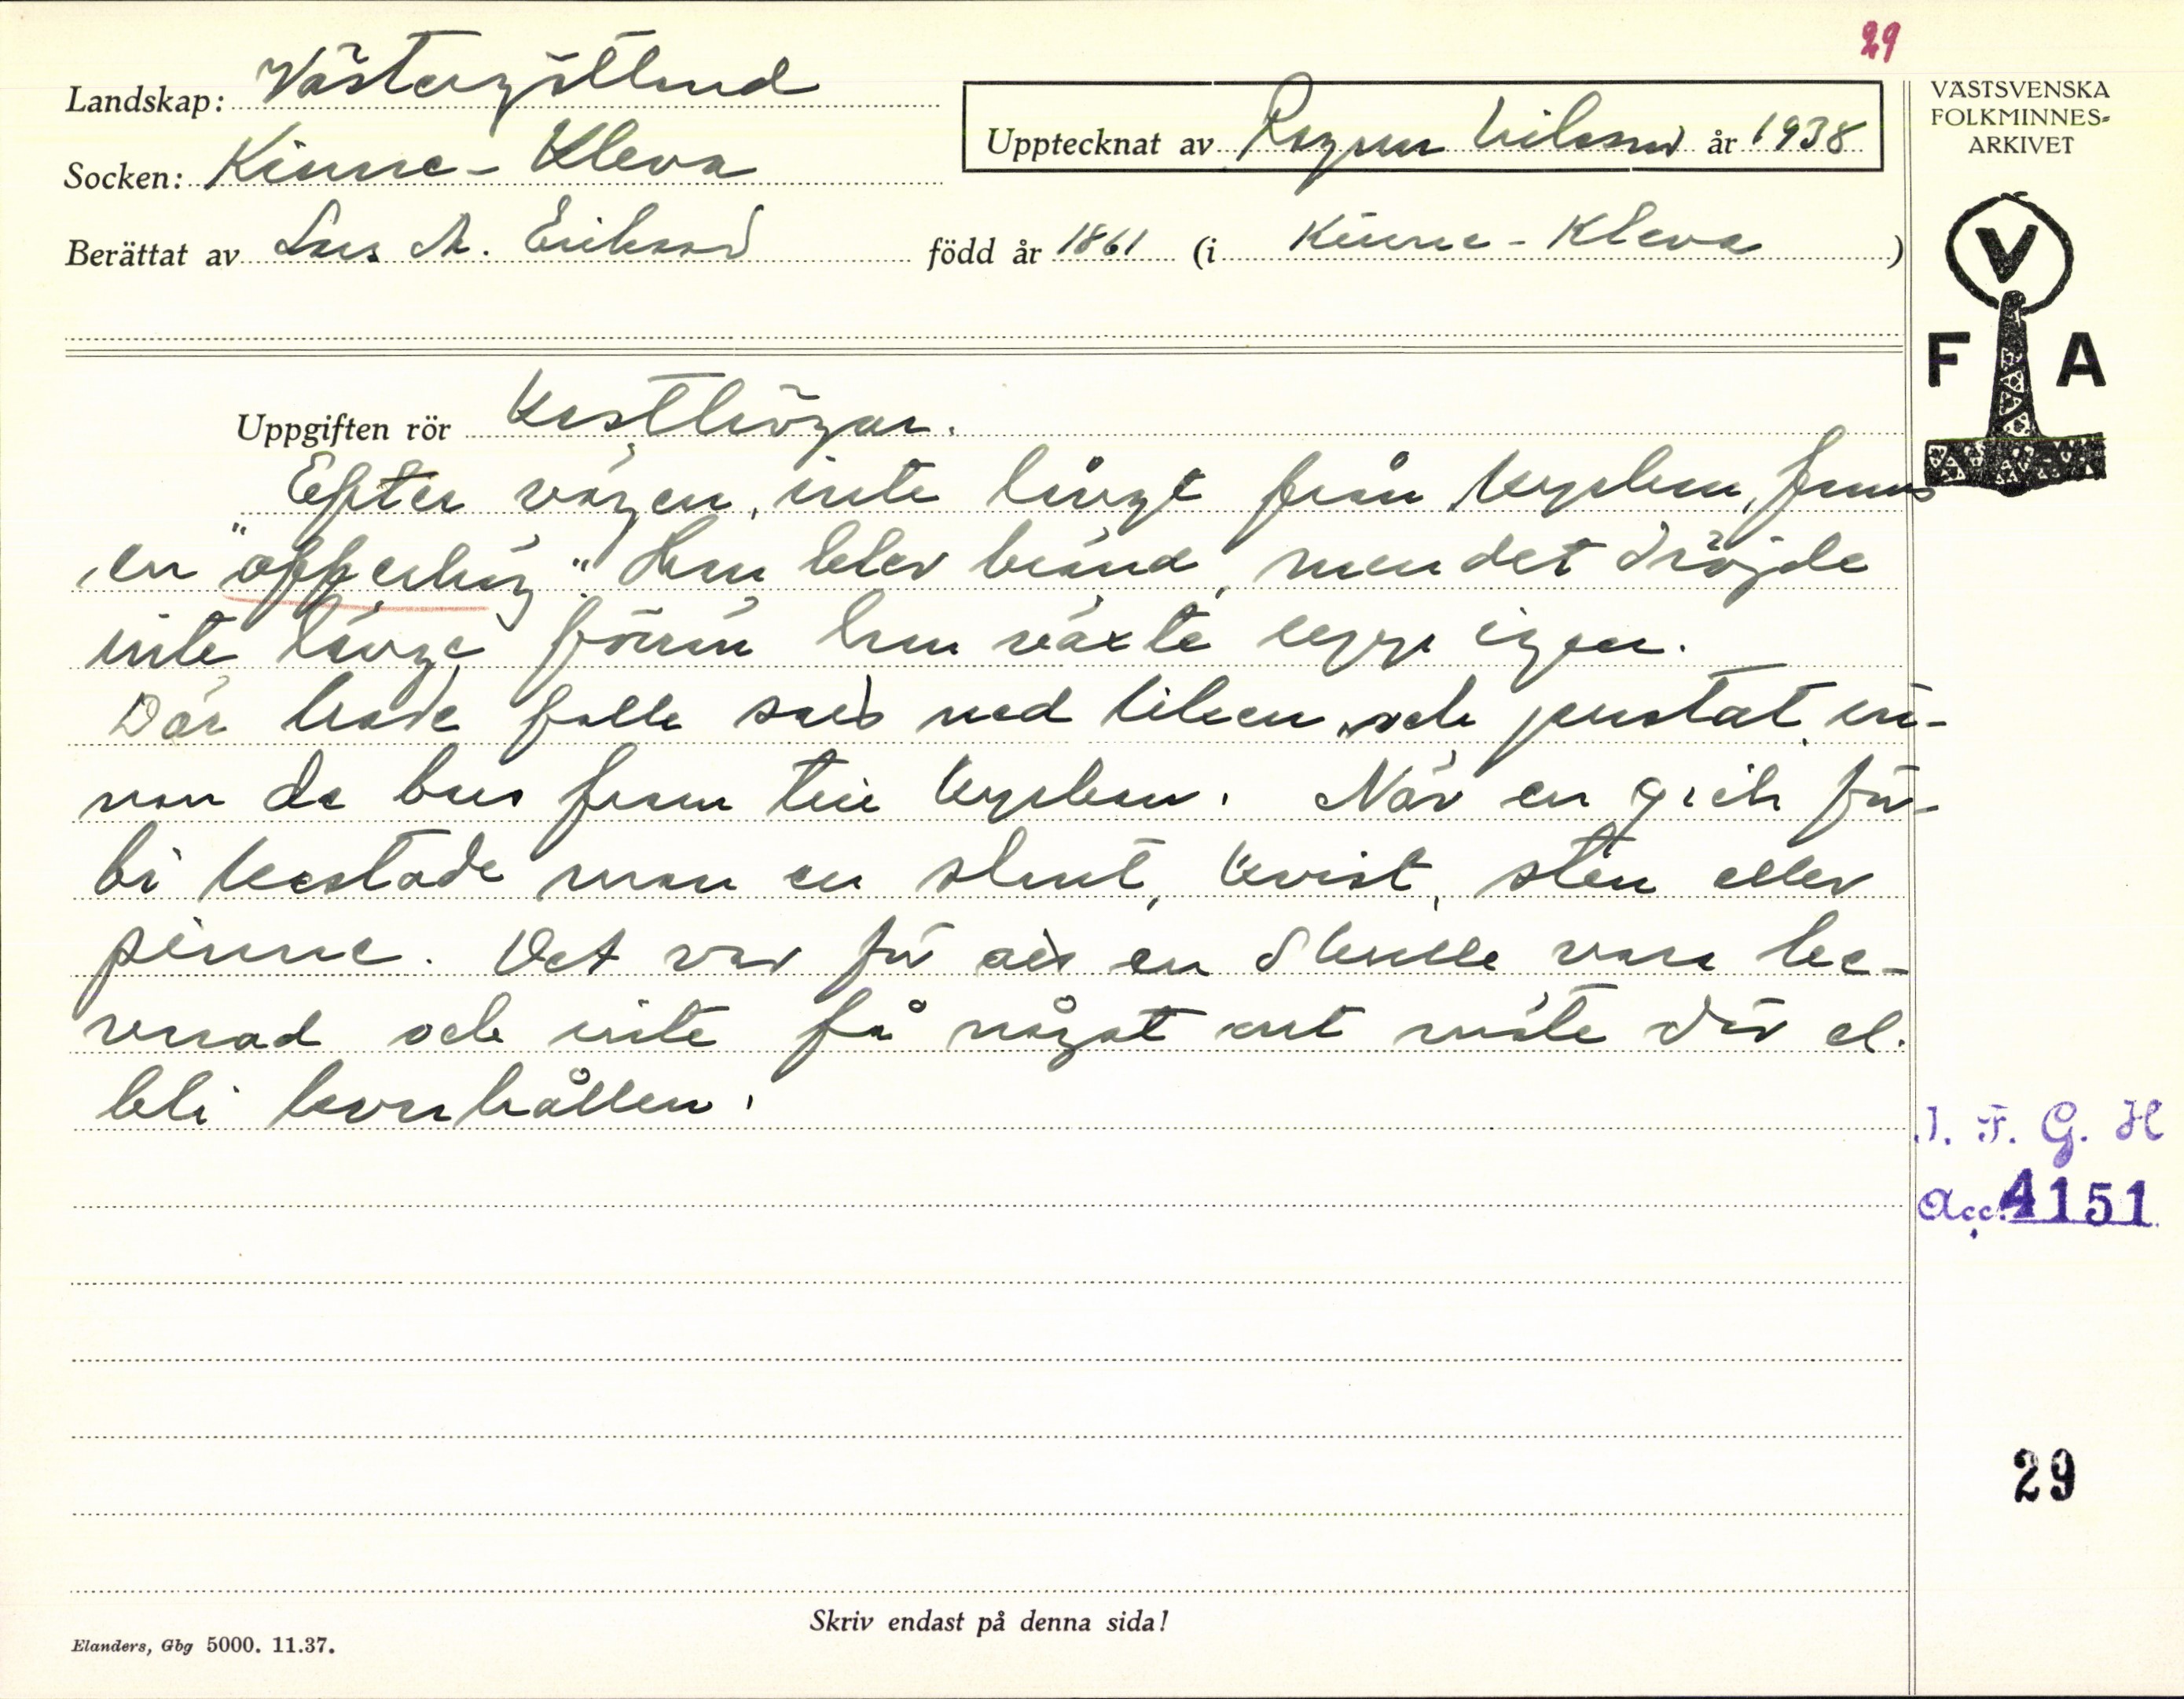 29
Landskap: Västergötland
Socken: Kinne-Kleva
Upptecknat av Ragnar Nilsson år 1938
Berättat av Lars A. Eriksson född år 1861 (i Kinne-Kleva)
VÄSTSVENSKA
FOLKMINNES-
ARKIVET
V
F A
Uppgiften rör Kasthögar.
Efter vägen, inte långt från kyrkan, fanns
en "offerhög". Han blev bränd, men det dröjde
inte länge förrän han växte upp igen.
Där hade folk satt ned liken och pustat in-
nan de bars fram till kyrkan. När en gick för-
bi kastade man en slant, kvist, sten eller
pinne. Det var för att en skulle vara be-
varad och inte få något ont möte där el.
bli kvarhållen.
I. F. G. H
Acc. 4151
29
Skriv endast på denna sida!
Elanders, Gbg 5000. 11.37.